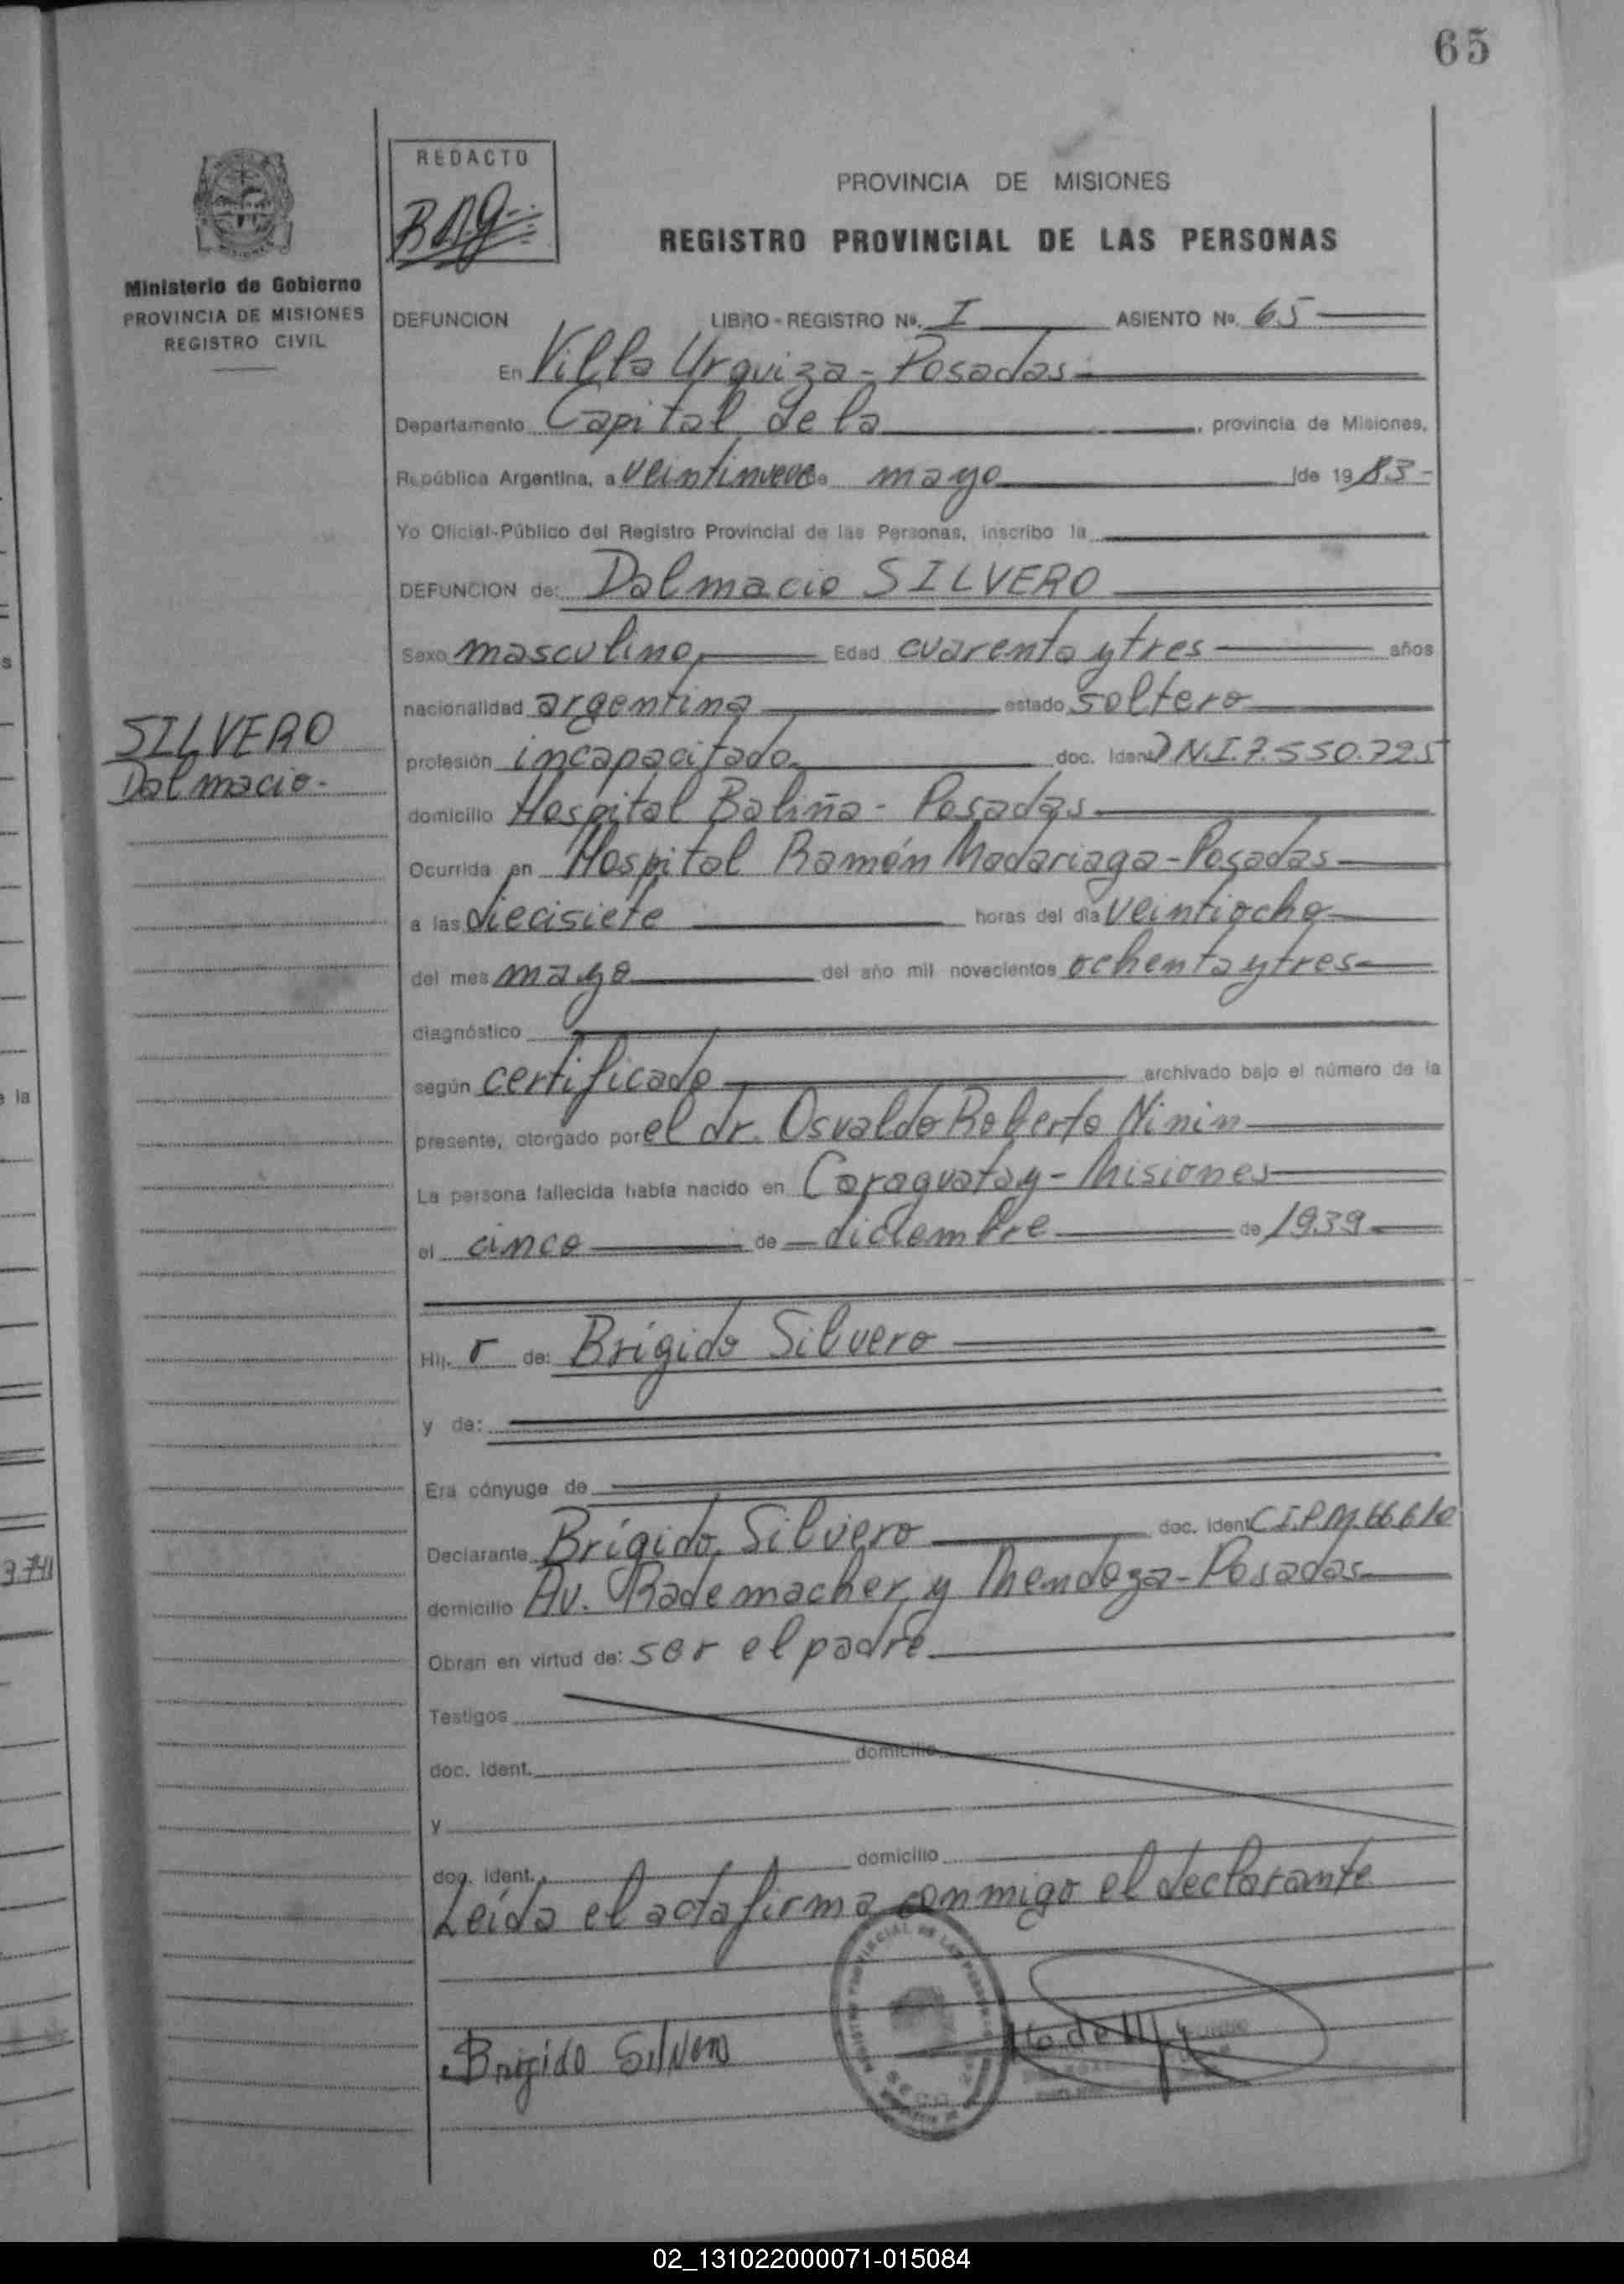 65
REDACTO
PROVINCIA DE MISIONES
REGISTRO PROVINCIAL DE LAS PERSONAS
Ministerio de Gobierno
PROVINCIA DE MISIONES
REGISTRO CIVIL
DEFUNCION LIBRO - REGISTRO Nº. I ASIENTO Nº. 65
En Villa Urquiza - Posadas
Departamento Capital de la, provincia de Misiones,
República Argentina, a veintinueve mayo de 1983 -
Yo Oficial-Público del Registro Provincial de las Personas, inscribo la
DEFUNCION de: Dalmacio SILVERO
Sexo masculino, Edad cuarenta y tres años
nacionalidad argentina estado soltero
SILVERO
Dalmacio.
profesión incapacitado doc. Ident D N.I. 7.550.725
domicilio Hospital Baliña - Posadas
Ocurrida en Hospital Ramón Madariaga - Posadas
a las diecisiete horas del día veintiocho
del mes mayo del año mil novecientos ochenta y tres
diagnóstico
según certificado archivado bajo el número de la
presente, otorgado por el dr. Osvaldo Roberto Ninin
La persona fallecida había nacido en Caraguatay - Misiones
el cinco de diciembre de 1939
Hij. o de: Brígido Silvero
y de:
Era cónyuge de
Declarante Brígido Silvero doc. Ident C.I.P.M. 66.610
domicilio Av. Rademacher y Mendoza - Posadas
Obran en virtud de: ser el padre
Testigos
doc. Ident. domicilio
y
doc. Ident. domicilio
Leída el acta firma conmigo el declarante
Brigido Silvero
02_131022000071-015084